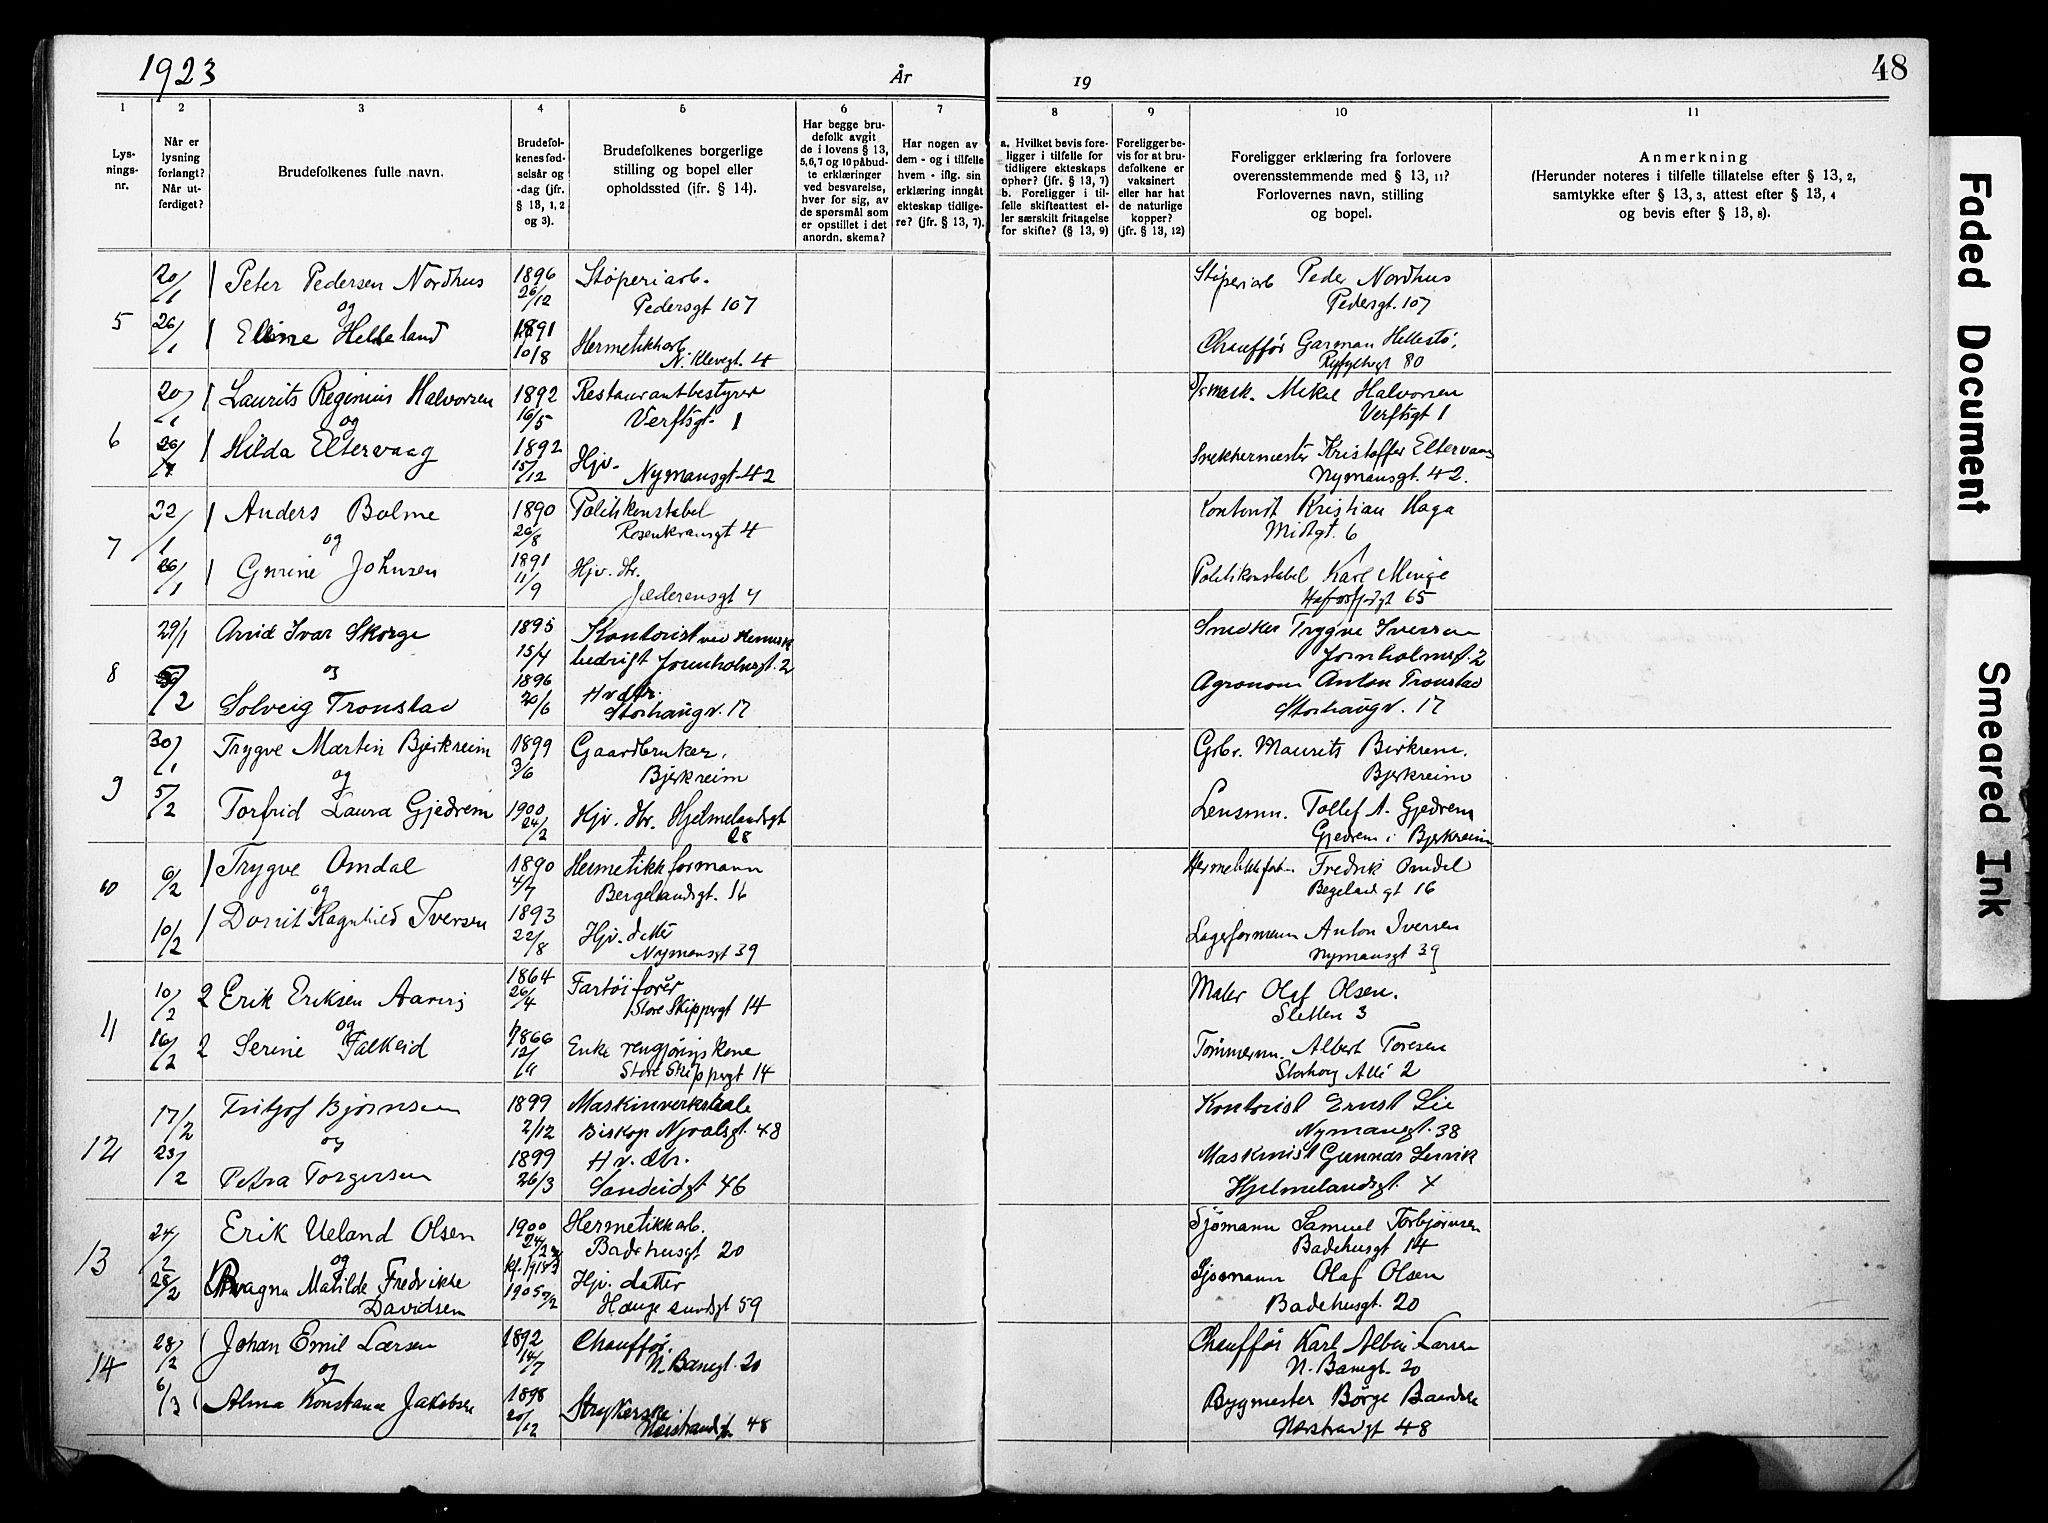 1923
År
19
48
1
2
3
4
5
6
7
8
9
10
11
Lys-
nings-
nr.
Når er
lysning
forlangt?
Når ut-
ferdiget?
Brudefolkenes fulle navn.
Brudefol-
kenes fød-
selsår og
-dag (jfr.
§ 13, 1, 2
og 3).
Brudefolkenes borgerlige
stilling og bopel eller
opholdssted (jfr. § 14).
Har begge bru-
defolk avgit
de i lovens § 13,
5, 6, 7 og 10 påbud-
te erklæringer
ved besvarelse,
hver for sig, av
de spørsmål som
er opstillet i det
anordn. skema?
Har nogen av
dem - og i tilfelle
hvem - iflg. sin
erklæring inngåt
ekteskap tidlige-
re? (jfr. § 13, 7).
a. Hvilket bevis fore-
ligger i tilfelle for
tidligere ekteskaps
ophør? (jfr. § 13, 7)
b. Foreligger i til-
felle skifteattest el-
ler særskilt fritagelse
for skifte? (§ 13, 9)
Foreligger be-
vis for at bru-
defolkene er
vaksinert
eller har hat
de naturlige
kopper?
(jfr. § 13, 12)
Foreligger erklæring fra forlovere
overensstemmende med § 13, 11?
Forlovernes navn, stilling
og bopel.
Anmerkning
(Herunder noteres i tilfelle tillatelse efter § 13, 2,
samtykke efter § 13, 3, attest efter § 13, 4
og bevis efter § 13, 8).
5
20/1
Peter Pedersen Nordhus
1896
26/12
Støperiarb.
Pedersgt 107
Støperiarb Peder Nordhus
Pedersgt. 107
og
26/1
Eline Helleland
1891
10/8
Hermetikkarb
N. Klevegt. 4
Chauffør Garman Hellestø,
80
6
20/1
Laurits Reginius Halvorsen
1892
16/5
Restaurantbestyrer
Verftsgt. 1
Mikal Halvorsen
Verftsgt 1
og
26/1
Hilda Eltervaag
1892
15/12
Hjv.
Nymansgt. 42
Snekkermester Kristoffer Eltervaag
Nymansgt. 42.
7
22/1
Anders Bolme
1890
26/8
Politikonstabel
Rosenkransgt 4
Kontorist Kristian Haga
Midtgt. 6
og
26/1
Gurine Johnsen
1891
11/9
Hjv. dtr.
Jæderensgt 4
Politikonstabel Karl Minge
Hafrsfjordgt 65
8
29/1
Arvid Ivar Skorge
1895
15/4
Kontorist ved kemisk
bedrift Jornholmsgt. 2
Snedker Trygve Iversen
Jornholmsgt. 2
og
5/2
Solveig Tronstad
1896
20/6
Hv. dtr.
Storhaugv. 17
Agronom Anton Tronstad
Storhaugv. 17
9
30/1
Trygve Martin Bjerkreim
1899
3/6
Gaardbruker.
Bjerkreim
Gbr. Maurits Birkrem.
Bjerkreim
og
5/2
Torfrid Laura Gjedrem
1900
24/2
Hjv. dtr. Hjelmelandsgt
28
Lensmn. Tollef A. Gjedrem
Gjedrem i Bjerkreim
10
6/2
Trygve Omdal
1890
4/7
Hermetikkformann
Bergelandsgt. 16
Fredrik Omdal
Begelandgt 16
og
10/2
Dorrit Ragnhild Iversen
1893
22/8
Hjv. datter
Nymansgt 39
Lagerformann Anton Iversen
Nymansgt 39
11
10/2
2 Erik Eriksen Aareg
1864
26/4
Fartøifører
Store Skippergt 14
Maler Olaf Olsen.
Sletten 3
og
16/2
2 Serine Falkeid
1866
12/11
Enke rengjøringskone
Store Skippergt 14
Tømmerm. Albert Toresen
Storhaug Allé 2
12
17/2
Fritjof Bjørnsen
1899
2/12
Biskop Njealsgt. 48
Kontorist Ernst Lie
Nymansgt. 38
og
23/2
Petra Torgersen
1899
26/3
Hv. dtr.
Sandeidgt 46
Maskinist Gunnar Leirvik
Hjelmelandsgt. 4
13
24/2
Erik Ueland Olsen
1900
Hermetikkarb.
Badehusgt 20
Sjømann Samuel Torbjørnsen
Badehusgt 14
og
28/2
Ragna Matilde Fredrikke
Davidsen
1905
Hjv. datter
Haugesundsgt 59
Sjømann Olaf Olsen
Badehusgt. 20
14
28/2
Johan Emil Larsen
1892
14/7
Chauffør.
N. Banegt. 20
Chauffør Karl Albin Larsen
N. Banegt. 20
og
6/3
Alma Konstanse Jakobsen
1898
20/12
Strykerske
Nerstrandgt 48
Bygmester Børge Baardsen
Nerstrandgt 48
Faded Document
Smeared Ink